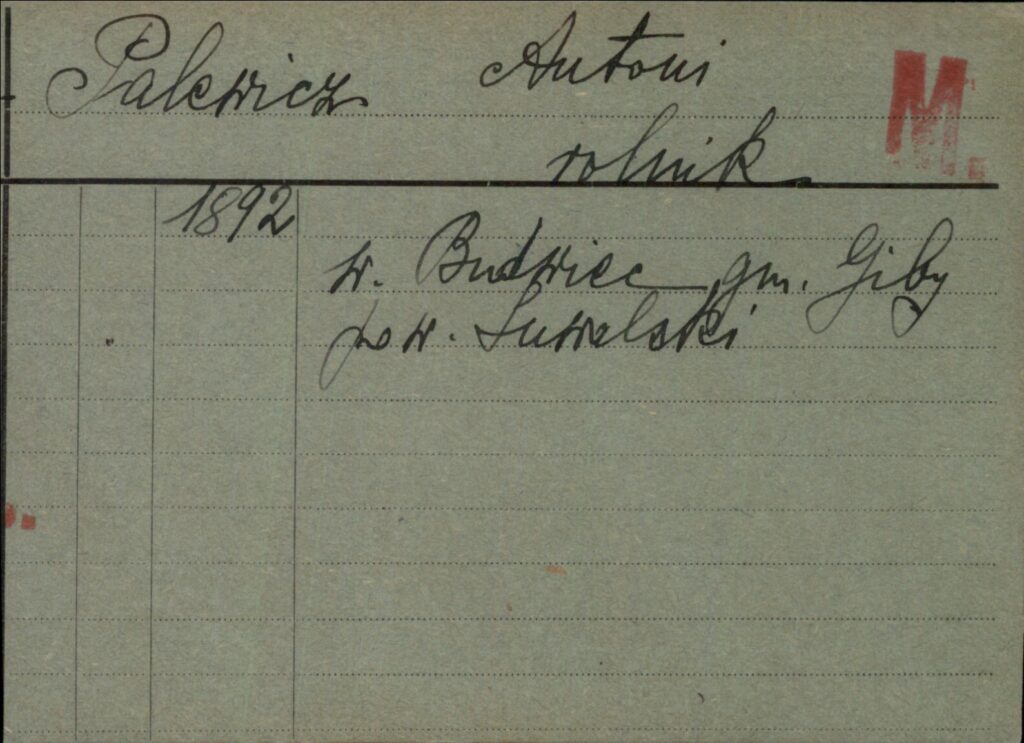 Palewicz Antoni M.
rolnik
1892
w. Budwiec gm. Giby
pow. Suwalski